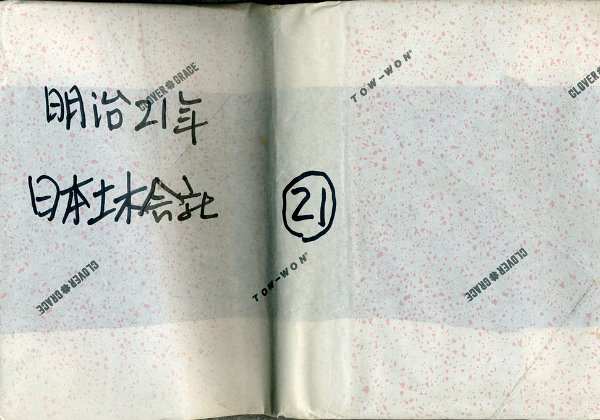 明治21年
日本土木会社
21
CLOVER GRACE
TOW-WON
CLOVER GRACE
CLOVER GRACE
TOW-WON
CLOVER GRACE